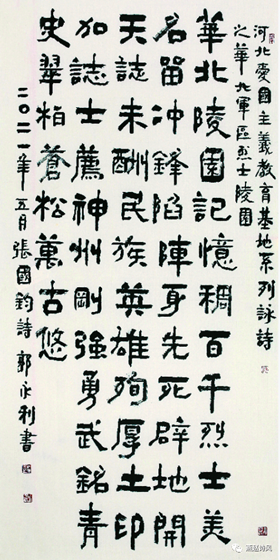 河北愛國主義教育基地系列詠詩
之華北軍區烈士陵園
華北陵園記憶稠百千烈士美
名留冲鋒陷陣身先死辟地開
天誌未酬民族英雄殉厚土印
加誌士薦神州剛強勇武銘青
史翠柏蒼松萬古悠
二〇二一年五月張國鈞詩 郭永利書